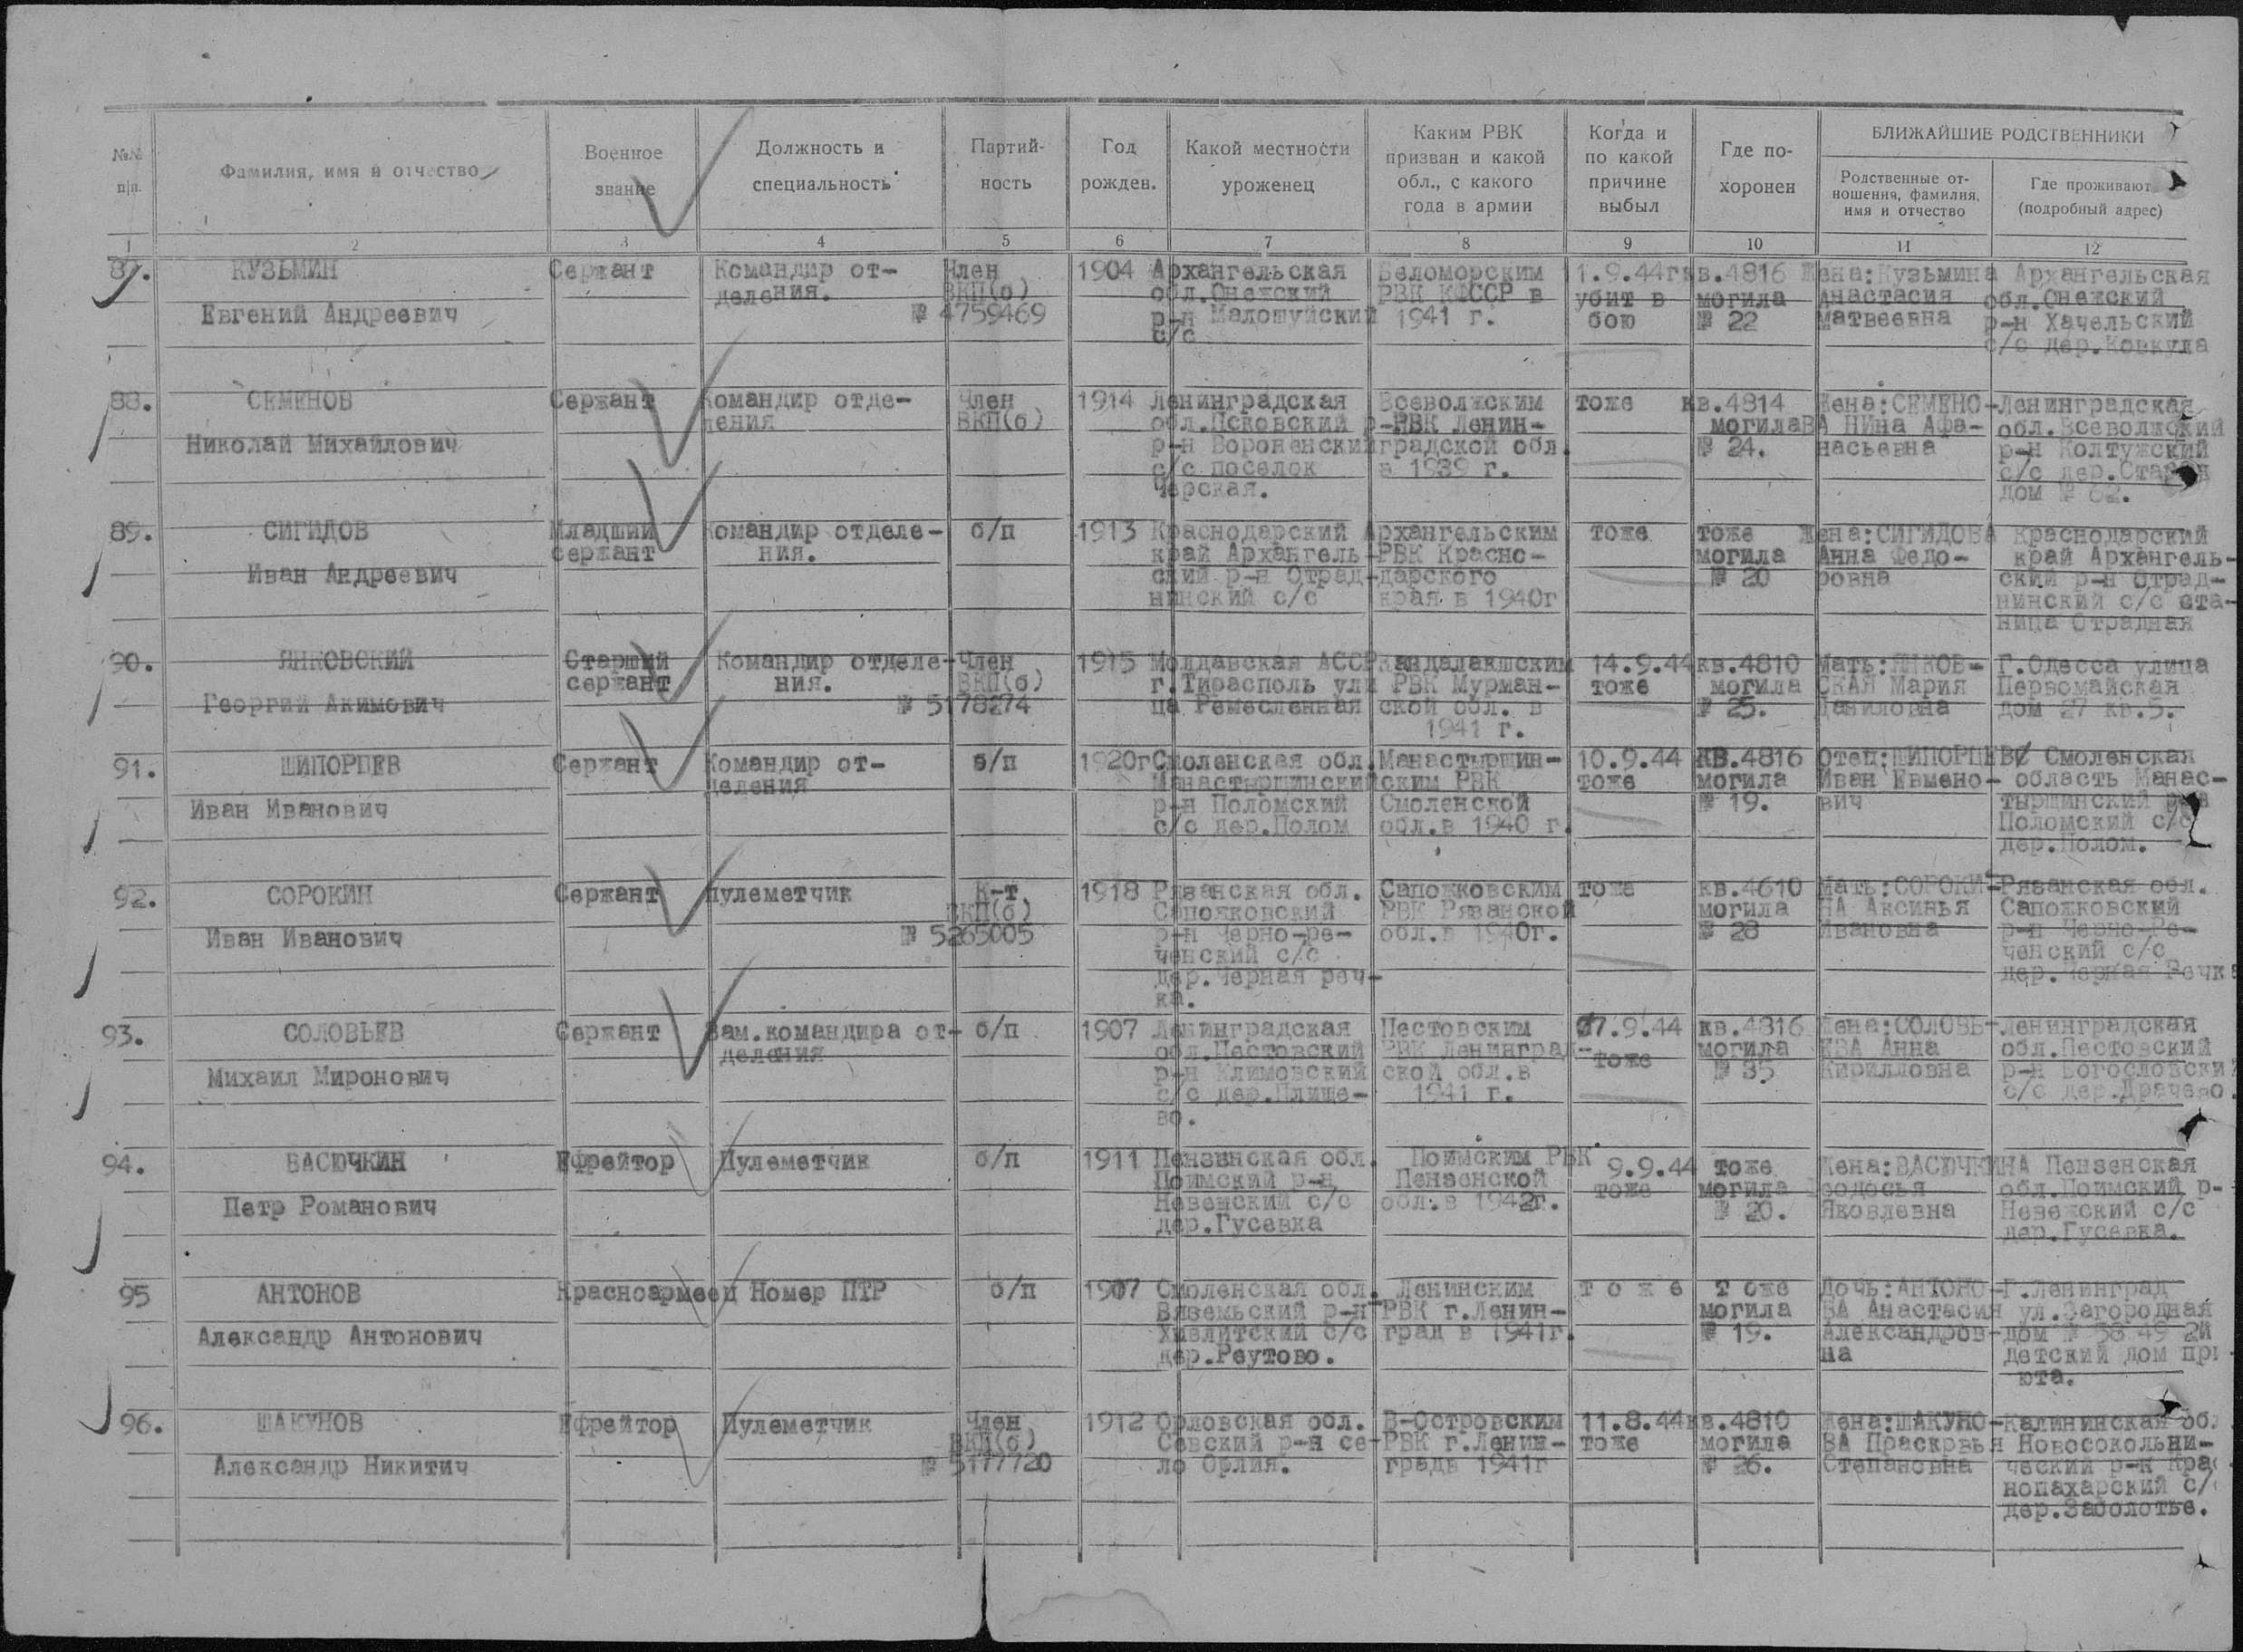 №№ п|п.
Фамилия, имя и отчество
Военное звание
Должность и специальность
Партий-
ность
Год рожден.
Какой местности уроженец
Каким РВК
призван и какой
обл., с какого
года в армии
Когда и
по какой
причине
выбыл
Где по-
хоронен
БЛИЖАЙШИЕ РОДСТВЕННИКИ
Родственные от-
ношения, фамилия,
имя и отчество
Где проживают
(подробный адрес)
1 2 3 4 5 6 7 8 9 10 11 12
87.
КУЗЬМИН
Евгений Андреевич
Сержант
Командир от-
деления.
Член
ВКП(б)
№ 4759469
1904
Архангельская
обл.Онежский
р-н Малошуйский
с/с
Беломорским
РВК КФССР в
1941 г.
1.9.44г
убит в
бою
кв.4816
могила
№ 22
Жена:Кузьмина
Анастасия
Матвеевна
Архангельская
обл.Онежский
р-н Хачельский
с/с дер.Ковкула
88.
СЕМЕНОВ
Николай Михайлович
Сержант
Командир отде-
ления
Член
ВКП(б)
1914
Ленинградская
обл.Псковский р-
р-н Вороненский
с/с поселок
Черская.
Всеволжским
РВК Ленин-
градской обл.
в 1939 г.
тоже
кв.4814
могила
№ 24.
Жена:СЕМЕНО-
ВА Нина Афа-
насьевна
Ленинградская
обл.Всеволжский
р-н Колтужский
с/с дер.
дом №
89.
СИГИДОВ
Иван Андреевич
Младший
сержант
Командир отделе-
ния.
б/п
1913
Краснодарский
край Архангель-
ский р-н Отрад-
нинский с/с
Архангельским
РВК Красно-
дарского
края в 1940г
тоже
тоже
могила
№ 20
Жена:СИГИДОВА
Анна Федо-
ровна
Краснодарский
край Архангель-
ский р-н Отрад-
нинский с/с ста-
ница Отрадная
90.
ЯНКОВСКИЙ
Георгий Акимович
Старший
сержант
Командир отделе-
ния.
Член
ВКП(б)
№ 5178274
1915
Молдавская АССР
г.Тирасполь ули
ца Ремесленная
Кандалакшским
РВК Мурман-
ской обл. в
1941 г.
14.9.44
тоже
кв.4810
могила
№ 25.
Мать:ЯНКОВ-
СКАЯ Мария
Даниловна
Г.Одесса улица
Первомайская
дом 27 кв.5.
91.
ШИПОРЦЕВ
Иван Иванович
Сержант
Командир от-
деления
б/п
1920г
Смоленская обл.
Манастырщинский
р-н Поломский
с/с дер.Полом
Манастырщин-
ским РВК
Смоленской
обл.в 1940 г.
10.9.44
тоже
КВ.4816
могила
№ 19.
Отец:ШИПОРЦЕВ
Иван Евмено-
вич
Смоленская
область Манас-
тырщинский
Поломский с/с
дер.Полом.
92.
СОРОКИН
Иван Иванович
Сержант
Пулеметчик
К-т
ВКП(б)
№ 5265005
1918
Рязанская обл.
Сапожковский
р-н Черно-ре-
ченский с/с
дер.Черная реч-
ка.
Сапожковским
РВК Рязанской
обл.в 1940г.
тоже
кв.4610
могила
№ 28
Мать:СОРОКИ-
НА Аксинья
Ивановна
Рязанская обл.
Сапожковский
р-н Черно-Ре-
ченский с/с
дер.Черная Речка
93.
СОЛОВЬЕВ
Михаил Миронович
Сержант
Зам.командира от-
деления
б/п
1907
Ленинградская
обл.Пестовский
р-н Климовский
с/с дер.Плище-
во.
Пестовским
РВК Ленинград-
ской обл.в
1941 г.
07.9.44
тоже
кв.4816
могила
№ 35
Жена:СОЛОВЬ-
ЕВА Анна
Кирилловна
Ленинградская
обл.Пестовский
р-н Богословский
с/с дер.Драчево.
94.
ВАСЮЧКИН
Петр Романович
Ефрейтор
Пулеметчик
б/п
1911
Пензенская обл.
Поимский р-н
Невежский с/с
дер.Гусевка
Поимским РВК
Пензенской
обл.в 1942г.
9.9.44
тоже
тоже
могила
№ 20.
Жена:ВАСЮЧКИНА
Феодосья
Яковлевна
Пензенская
обл.Поимский р-
Невежский с/с
дер.Гусевка.
95
АНТОНОВ
Александр Антонович
Красноармеец
Номер ПТР
б/п
1907
Смоленская обл.
Вяземьский р-н
Хмелитский с/с
дер.Реутово.
Ленинским
РВК г.Ленин-
град в 1941г.
т о ж е
т оже
могила
№ 19.
Дочь:АНТОНО-
ВА Анастасия
Александров-
на
Г.Ленинград
ул.Загородная
дом № 58 49 2й
детский дом при
юта.
96.
ШАКУНОВ
Александр Никитич
Ефрейтор
Пулеметчик
Член
ВКП(б)
№ 5177720
1912
Орловская обл.
Севский р-н се-
ло Орлия.
В-Островским
РВК г.Ленин-
градв 1941г
11.8.44
тоже
кв.4810
могила
№ 26.
Жена:ШАКУНО-
ВА Прасковья
Степановна
Калининская обл
Новосокольни-
ческий р-н Крас
нопахарский с/с
дер.Заболотье.